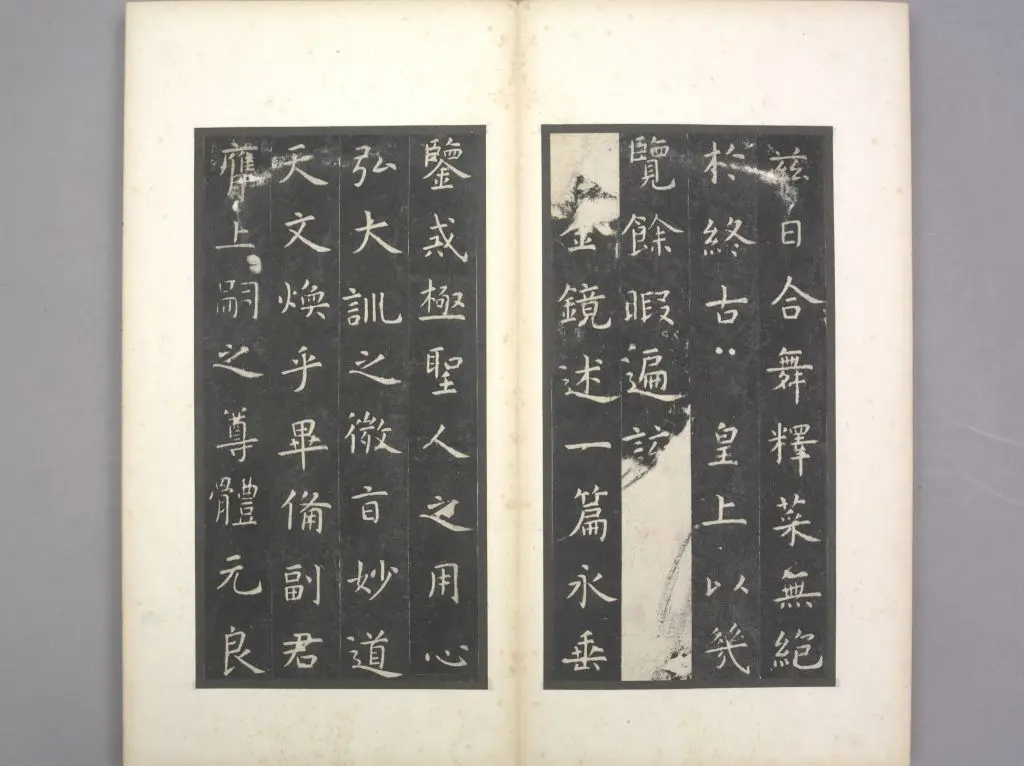 茲日合舞釋菜無絕
於終古〻皇上以㡬
覽餘暇遍該
金鏡述一篇永垂
鑒戒極聖人之用心
弘大訓之微旨妙道
天文煥乎畢備副君
膺上嗣之尊體元良